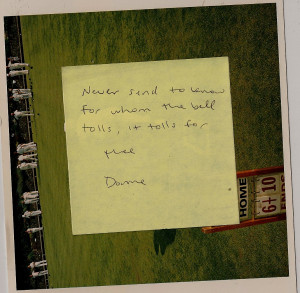 Never send to know
for whom the bell
tolls, it tolls for
thee
Donne
HOME
6+10
ENDS